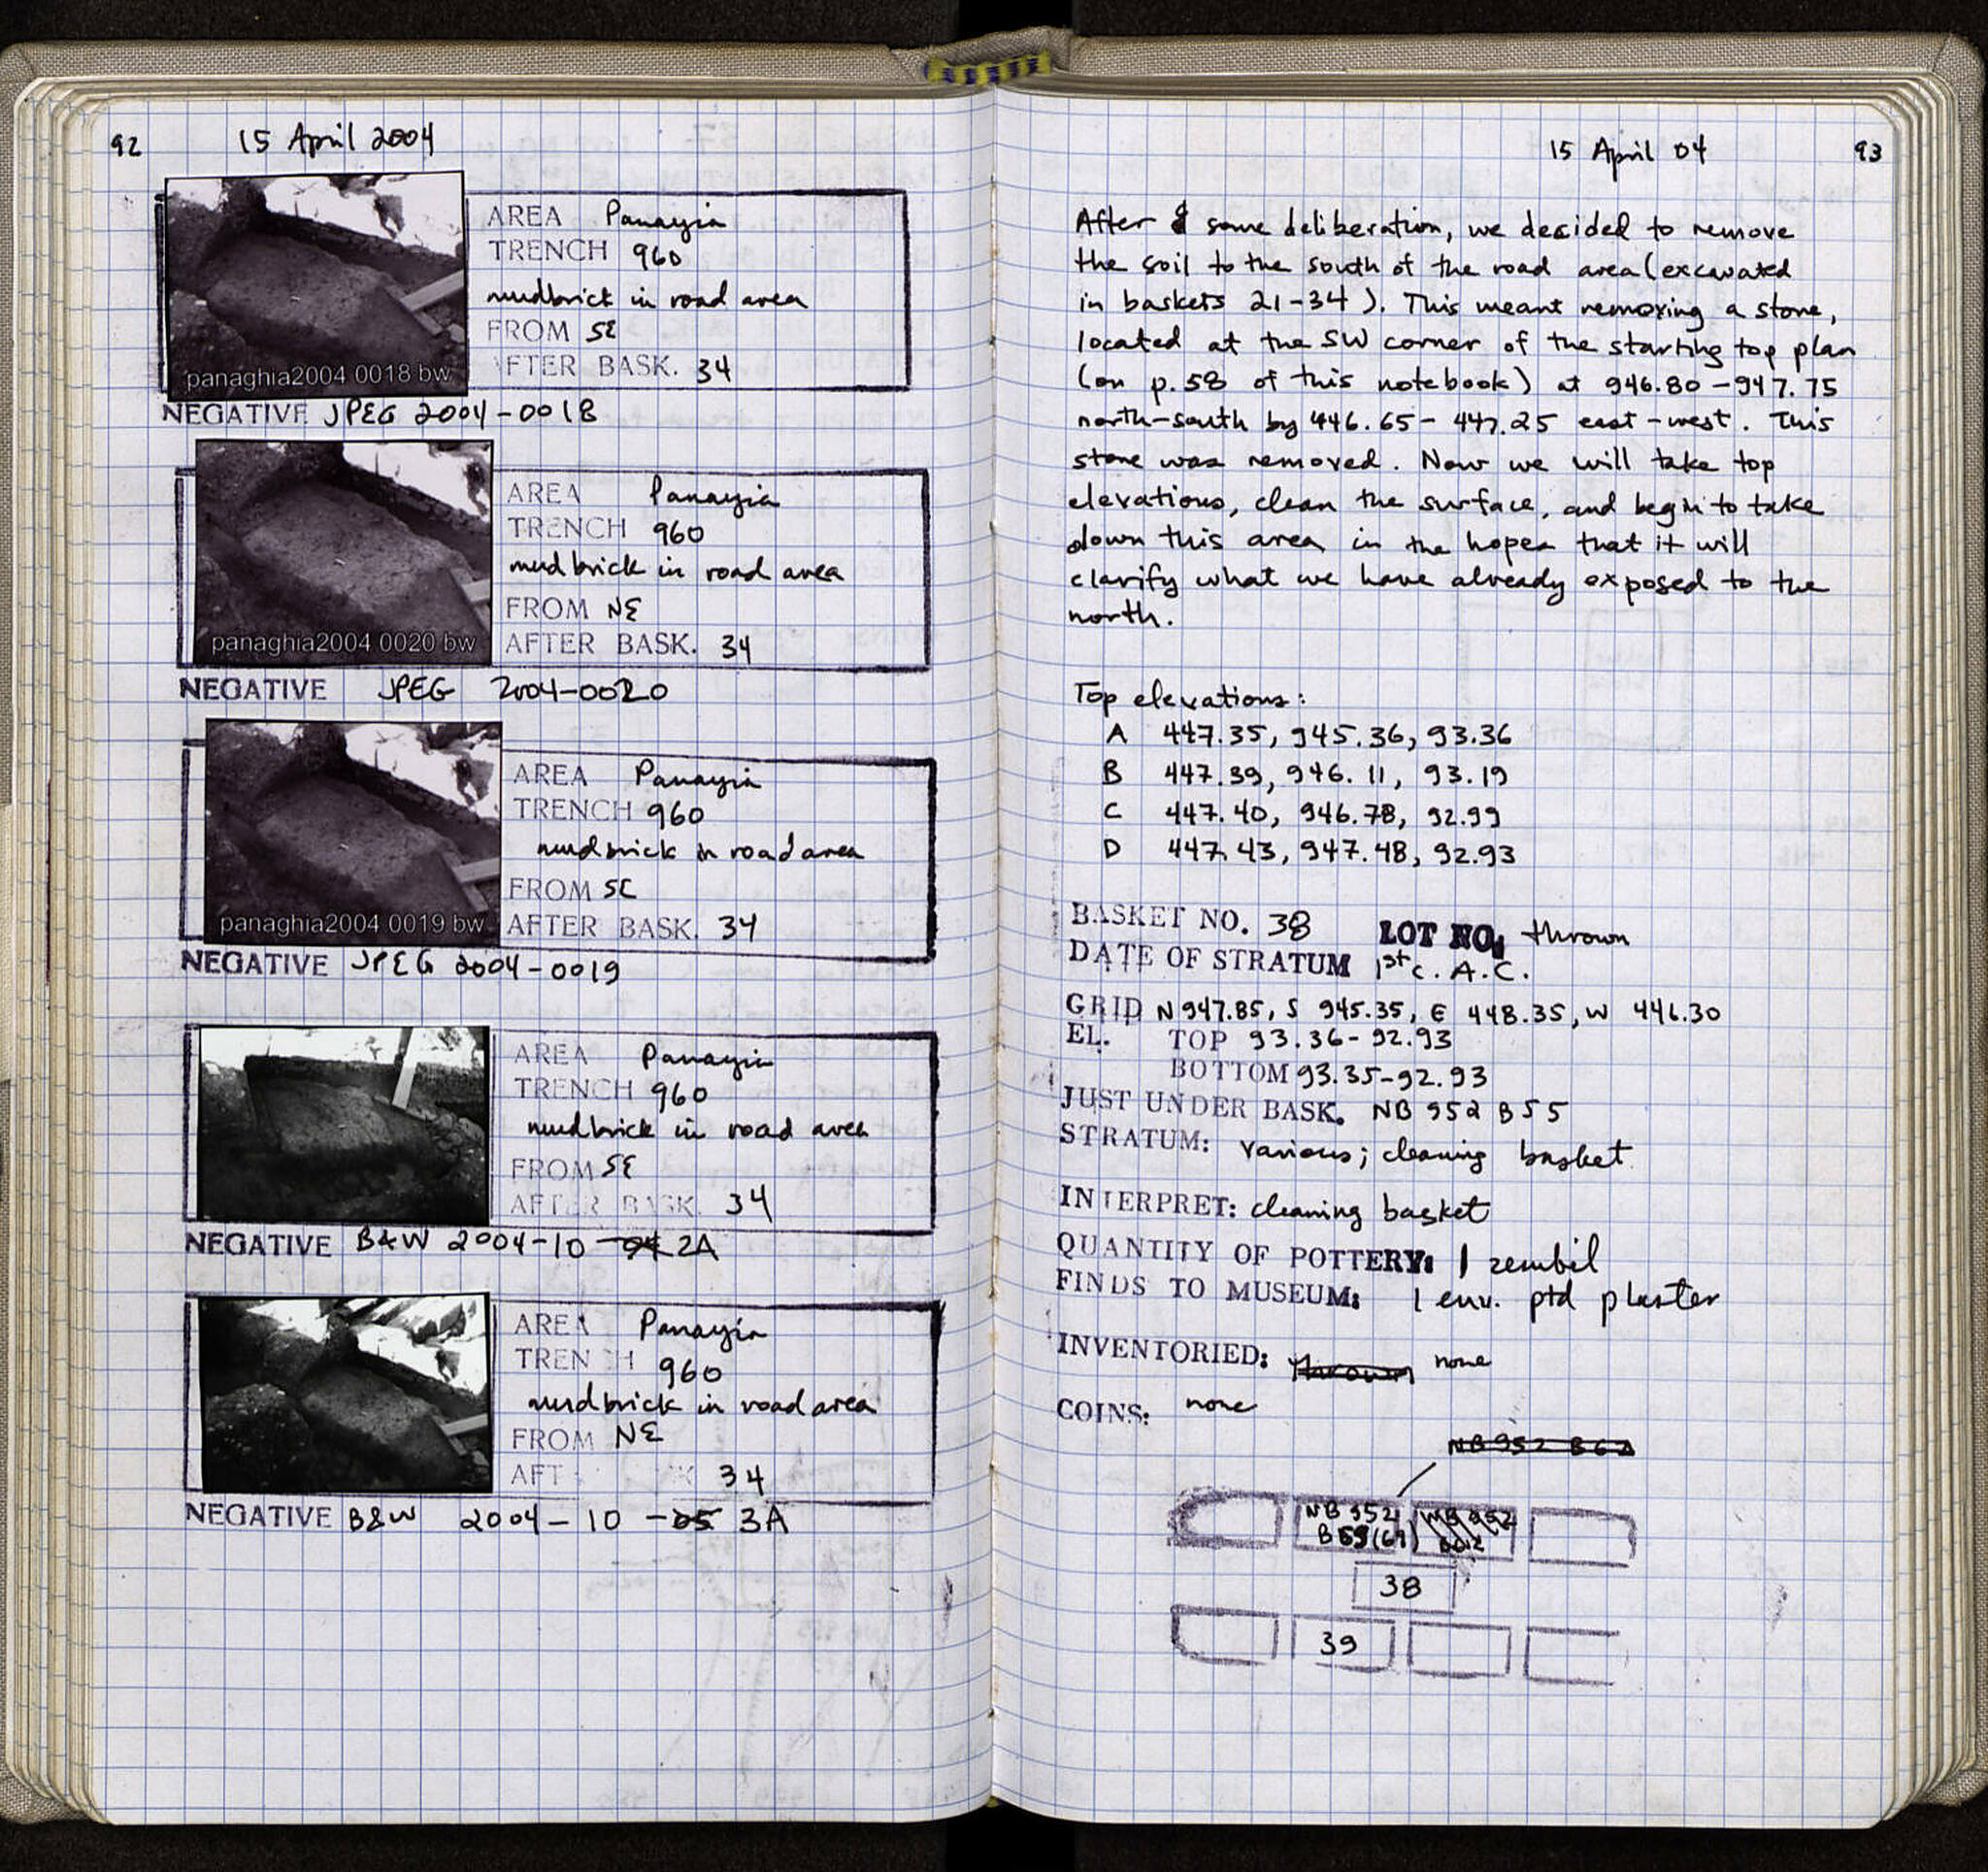 92
15 April 2004
AREA Panayia
TRENCH 960
mudbrick in road area
FROM SE
AFTER BASK. 34
panaghia2004 0018 bw
NEGATIVE JPEG 2004-0018
AREA Panayia
TRENCH 960
mudbrick in road area
FROM NE
AFTER BASK. 34
panaghia2004 0020 bw
NEGATIVE JPEG 2004-0020
AREA Panayia
TRENCH 960
mudbrick in road area
FROM SE
AFTER BASK. 34
panaghia2004 0019 bw
NEGATIVE JPEG 2004-0019
AREA Panayia
TRENCH 960
mudbrick in road area
FROM SE
AFTER BASK. 34
NEGATIVE B&W 2004-10 2A
AREA Panayia
TRENCH 960
mudbrick in road area
FROM NE
AFT K 34
NEGATIVE B&W 2004-10 -05 3A
15 April 04
93
After some deliberation, we decided to remove
the soil to the south of the road area (excavated
in baskets 21-34). This meant removing a stone,
located at the SW corner of the starting top plan
(on p.58 of this notebook) at 946.80-947.75
north-south by 446.65-447.25 east-west. This
stone was removed. Now we will take top
elevations, clean the surface, and begin to take
down this area in the hopes that it will
clarify what we have already exposed to the
north.
Top elevations:
A 447.35, 945.36, 93.36
B 447.39, 946.11, 93.19
C 447.40, 946.78, 92.99
D 447.43, 947.48, 92.93
BASKET NO. 38 LOT NO. thrown
DATE OF STRATUM 1st c. A.C.
GRID N 947.85, S 945.35, E 448.35, W 446.30
EL. TOP 93.36-92.93
BOTTOM 93.35-92.93
JUST UNDER BASK. NB 952 B55
STRATUM: various; cleaning basket
INTERPRET: cleaning basket
QUANTITY OF POTTERY: 1 zembil
FINDS TO MUSEUM: 1 env. ptd plaster
INVENTORIED: thrown none
COINS: none
NB 952 B62
NB 952 NB 952
38
39